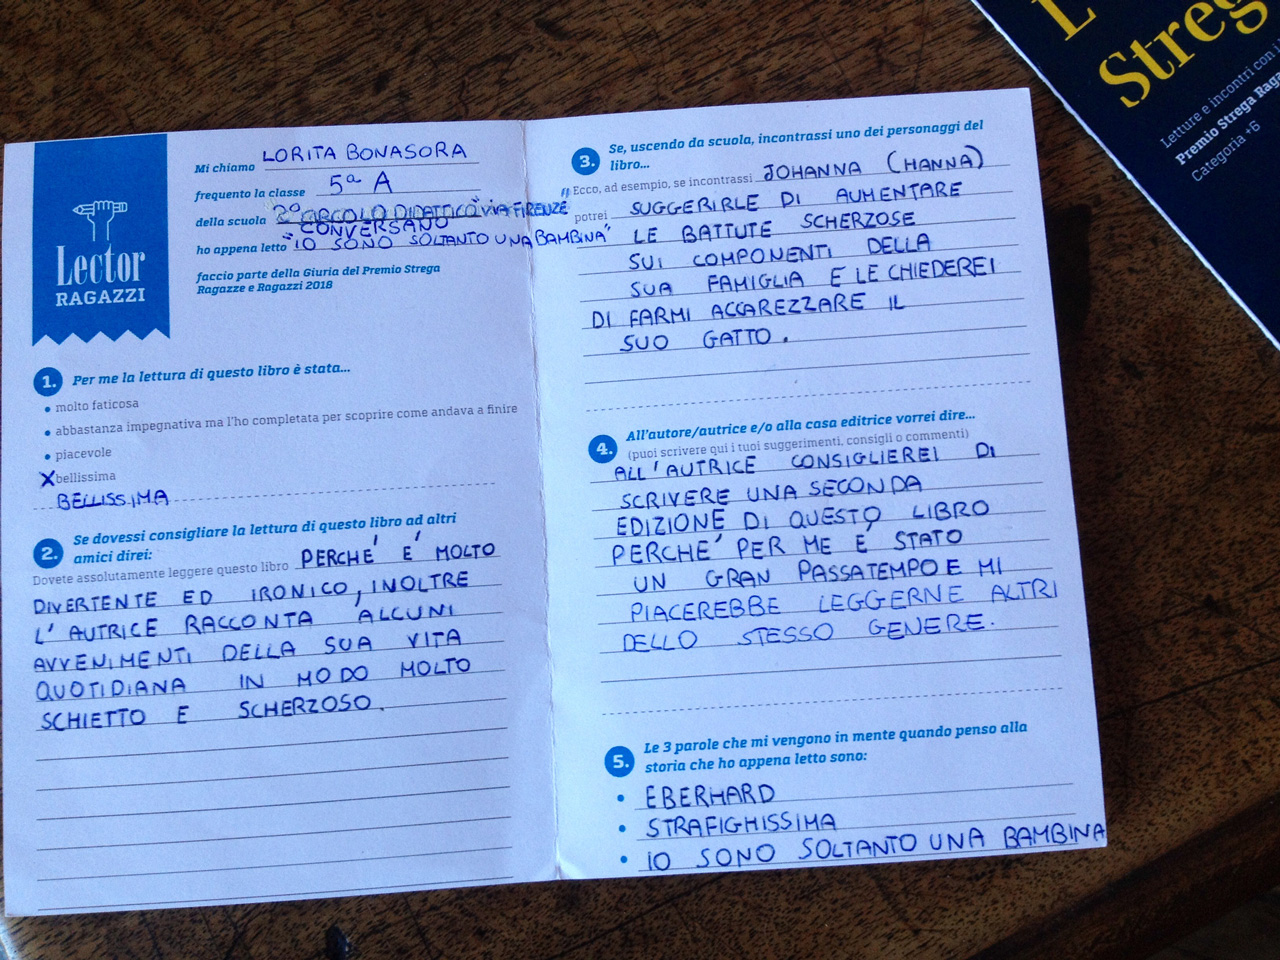 Lector
RAGAZZI
Mi chiamo LORITA BONASORA
frequento la classe 5ª A
della scuola 2° CIRCOLO DIDATTICO "VIA FIRENZE"
CONVERSANO
ho appena letto "IO SONO SOLTANTO UNA BAMBINA"
faccio parte della Giuria del Premio Strega
Ragazze e Ragazzi 2018
1. Per me la lettura di questo libro è stata...
• molto faticosa
• abbastanza impegnativa ma l'ho completata per scoprire come andava a finire
• piacevole
X bellissima
BELLISSIMA
2. Se dovessi consigliare la lettura di questo libro ad altri
amici direi:
Dovete assolutamente leggere questo libro PERCHE' E' MOLTO
DIVERTENTE ED IRONICO, INOLTRE
L'AUTRICE RACCONTA ALCUNI
AVVENIMENTI DELLA SUA VITA
QUOTIDIANA IN MODO MOLTO
SCHIETTO E SCHERZOSO.
3. Se, uscendo da scuola, incontrassi uno dei personaggi del
libro...
Ecco, ad esempio, se incontrassi JOHANNA (HANNA)
potrei SUGGERIRLE DI AUMENTARE
LE BATTUTE SCHERZOSE
SUI COMPONENTI DELLA
SUA FAMIGLIA E LE CHIEDEREI
DI FARMI ACCAREZZARE IL
SUO GATTO.
4. All'autore/autrice e/o alla casa editrice vorrei dire...
(puoi scrivere qui i tuoi suggerimenti, consigli o commenti)
ALL'AUTRICE CONSIGLIEREI DI
SCRIVERE UNA SECONDA
EDIZIONE DI QUESTO LIBRO
PERCHE' PER ME E' STATO
UN GRAN PASSATEMPO E MI
PIACEREBBE LEGGERNE ALTRI
DELLO STESSO GENERE.
5. Le 3 parole che mi vengono in mente quando penso alla
storia che ho appena letto sono:
• EBERHARD
• STRAFIGHISSIMA
• IO SONO SOLTANTO UNA BAMBINA
Letture e incontri con
Premio Strega
Categoria +6